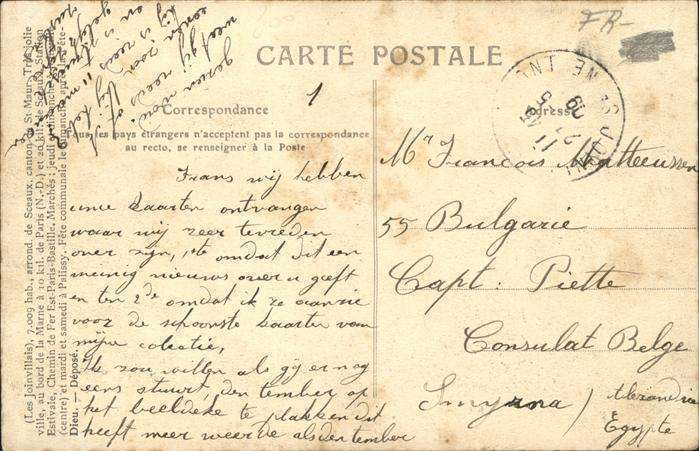 FR-
CARTE POSTALE
Correspondance
Tous les pays étrangers n'acceptent pas la correspondance
au recto, se renseigner à la Poste
1
Adresse
Frans wij hebben
uwe kaarten ontvangen
waar wij zeer tevreden
over zijn, 1te omdat dit een
weinig nieuws over u geeft
en ten 2de omdat ik ze aanzie
voor de schoonste kaarten van
mijne colectie,
Ik zou willen als gij er nog
eens stuurt, den tember op
het beeldeke te plakken dit
heeft meer weerde als den tember
Mr François Mattheeussen
55 Bulgarie
Capt: Piette
Consulat Belge
Smyrna / Alexandrie
Egypte
(Les Joinvillais), 7.009 hab., arrond. de Sceaux, canton de St-Maur. Très jolie
ville, au bord de la Marne à 10 kil. de Paris (N.-D.) et 20 kil. de Sceaux. Station
Estivale, Chemin de Fer Est-Paris-Bastille. Marchés : jeudi et dimanche
(centre) et mardi et samedi à Palissy. Fête communale le dimanche après la Fête-
Dieu. — Déposé.